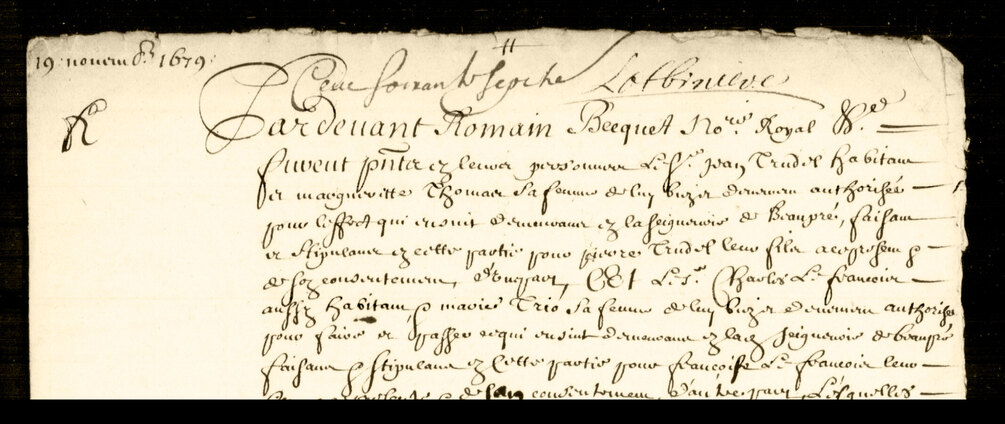 19. novemb. 1679.
Cede soixante septie Lotbiniere
R
Pardevant Romain Becquet No.re Royal &.a
furent pnts en leurs personnes Le Sr. Jean Trudel habitant
et margueritte Thomas sa femme de luy bien deuement authorisée
pour l'effect qui ensuit demeurans en la seigneurie de Beaupré, faisans
et stipulans en cette partie pour pierre Trudel leur fils a ce present &
de son consentement, d'une part, ET Le Sr. Charles Le francois
aussy habitant, & marie Trio sa femme de luy bien deuement authorisée
pour faire et passer ce qui ensuit demeurans en lad. seigneurie de beaupré
faisans & stipulans en cette partie pour francoise Le francois leur
de son consentement, d'autre part, Lesquelles